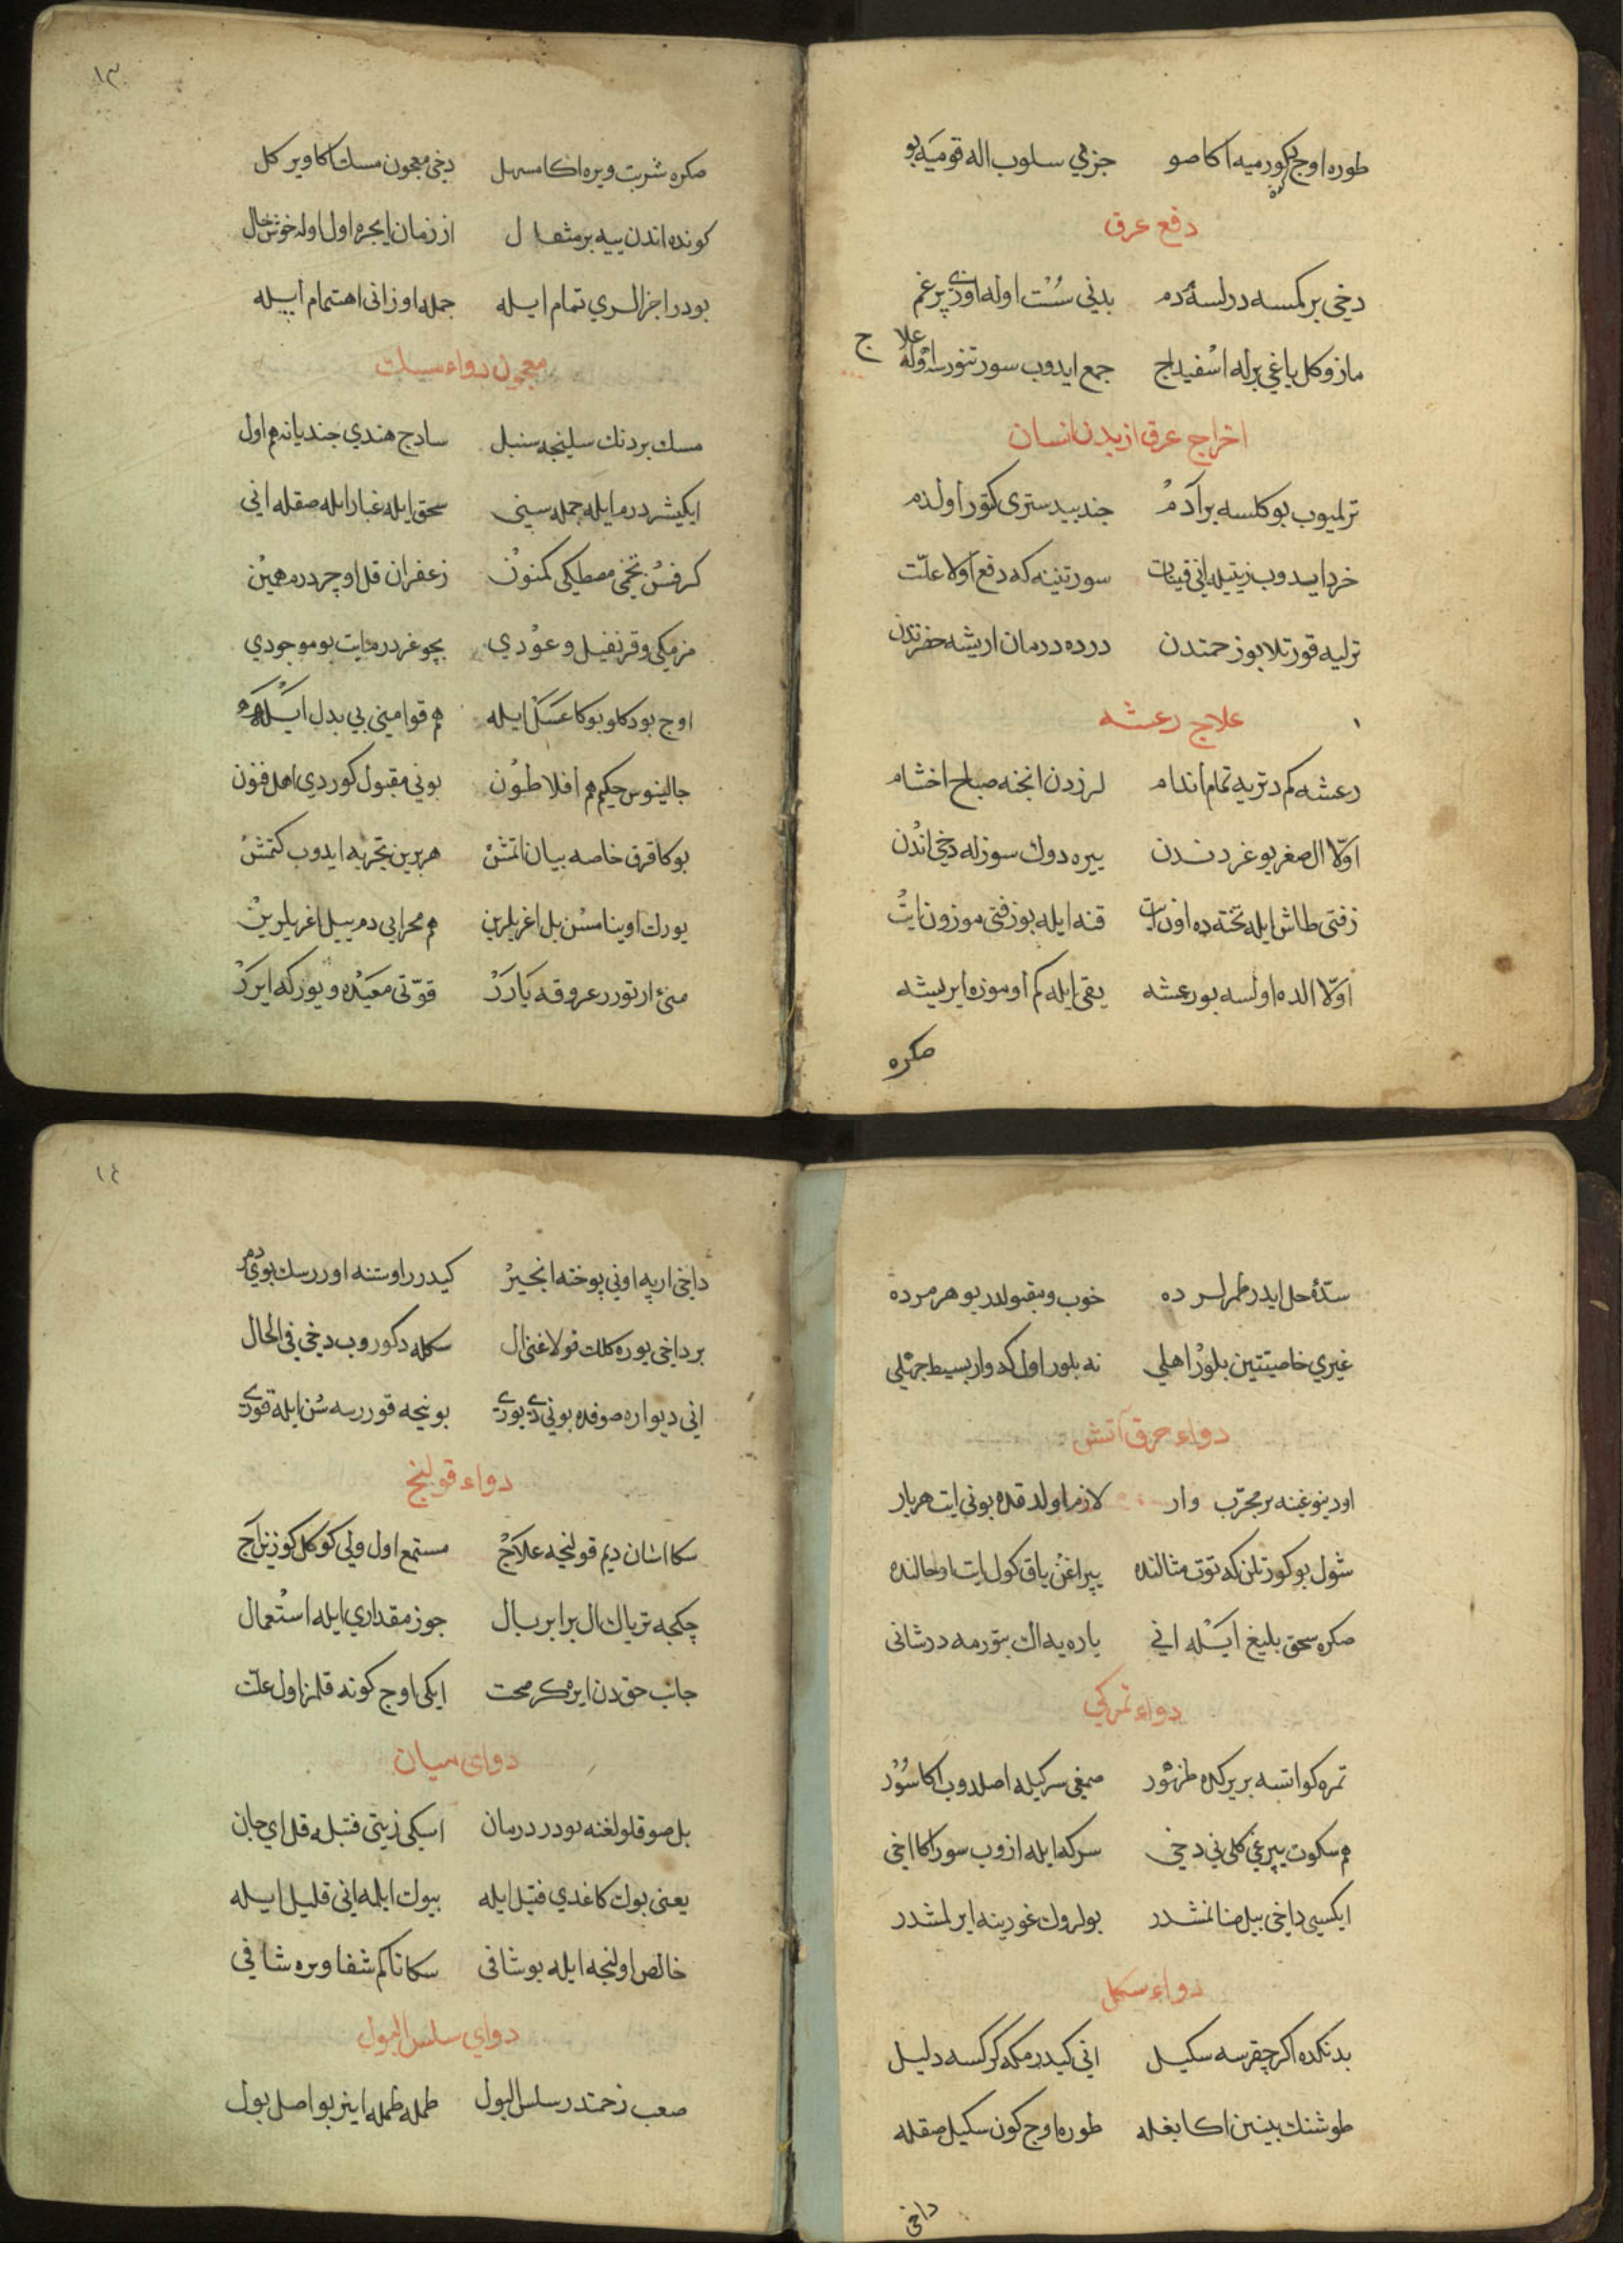 طوره اوج كون كورميه اكا صو جزمي سلوب اله قوميه بو
دفع عرق
دخی بر كمسه درلسه دم بدنی سست اوله اوزی پر غم
مازو كل یاغی برله اسفیداج جمع ایدوب سورتنور سه اوله علاج
اخراج عرق از بدن انسان
ترلمیوب بو كلسه بر آدم جند بیدستری كتور اول دم
خرد ایدوب زیتیله انی قینات سور تنینه كه دفع اولا علت
ترلیه قورتلا بو زحمتدن درده درمان اریشه حضرتدن
علاج رعشه
رعشه كم دتریه تمام اندام لرزدن انجنه صباح اخشام
اولا ال صغر بوغردندن ییره دوك سوزله دخی اندن
زفتی طاش ایله تخته ده اون ات قنه ایله بو زفتی موزون ات
اولا الده اولسه بو رعشه یقی ایله كم اوموزه ایریشه
صكره
١٣
صكره شربت ویره اكا مسهل دخی معجون مسك اكا ویر كل
كونده اندن ییه بر مثقال از زمان ایچره اول اوله خوش حال
بودر اجزالری تمام ایله جمله اوزانی اهتمام ایله
معجون دواء مسك
مسك بر دنك سلیخه سنبل سادج هندی جندیانه هم اول
ایكیشر درم ایله جمله سینی سحق ایله غبار ایله صقله انی
كرفس تخمی مصطكی كمنون زعفران قل اوچر درم همین
مر مكی و قرنفیل و عودی بچوغر درم ایت بو موجودی
اوج بودكلو بوكا عسل ایله هم قوامینی بی بدل ایله
جالینوس حكیم هم افلاطون بونی مقبول كوردی اهل فنون
بوكا قرق خاصه بیان اتمش هربرین تجربه ایدوب كتمش
یورك اوینامسن بل اغریلرین هم محرابی دم ییل اغریلرین
منی ارتورر عروقه یارر قوتی معیده و یوركه ایرر
سدهٔ حل ایدر طمرلرده خوب و مقبولدر بو هر مرده
غیری خاصیتین بلور اهلی نه بلور اول كه وار بسیط جهلی
دواء حرق آتش
اود ینوغنه بر مجرب وار لازم اولدقده بونی ایت هر بار
شول بوكورتلن كه توت مثالنده یپراغن یاق كول ایت اوحالنده
صكره سحق بلیغ ایله انی یاره یه اك بتورمه در شانی
دواء تمركی
تمره كو اتسه بر یركده ظهور صمغی سركیله اصلدوب اكا سور
هم سكوت یپرغی كلی نی دخی سركه ایله ازوب سور اكا اخی
ایكسی داخی بیل صنا نمشدر بولروك غورینه ایرلمشدر
دواء سكل
بدنكده اكر چقرسه سكیل انی كیدرمكه كركسه دلیل
طوشنك بینین اكا بغله طوره اوج كون سكیل صقله
داخی
١٤
داخی ارپه اونی پوخته انجیر كیدرر اوستنه اوررسك بوی دمر
بر داخی بوره كلك قولاغنی ال سكله دكوروب دخی فی الحال
انی دیواره صوقده بونی دی یوری بو نیجه قوررسه سن ایله قوری
دواء قولنج
سكا اسان دیم قولنجه علاج مستمع اول ولی كوكل كوزن آج
چكجه تریاك ال برابر بال جوز مقداری ایله استعمال
جانب حقدن ایره كر صحت ایكی اوج كونه قلمز اول علت
دوای میان
بل صوقلولغنه بودر درمان اسكی زیتی فتیله قل ای جان
یعنی بوك كاغدی فتیل ایله بیوك ایلمه انی قلیل ایله
خالص اولنجه ایله بو شافی سكا تا كم شفا ویره شافی
دوای سلس البول
صعب زحمتدر سلس البول طمله طمله اینر بو اصل بول